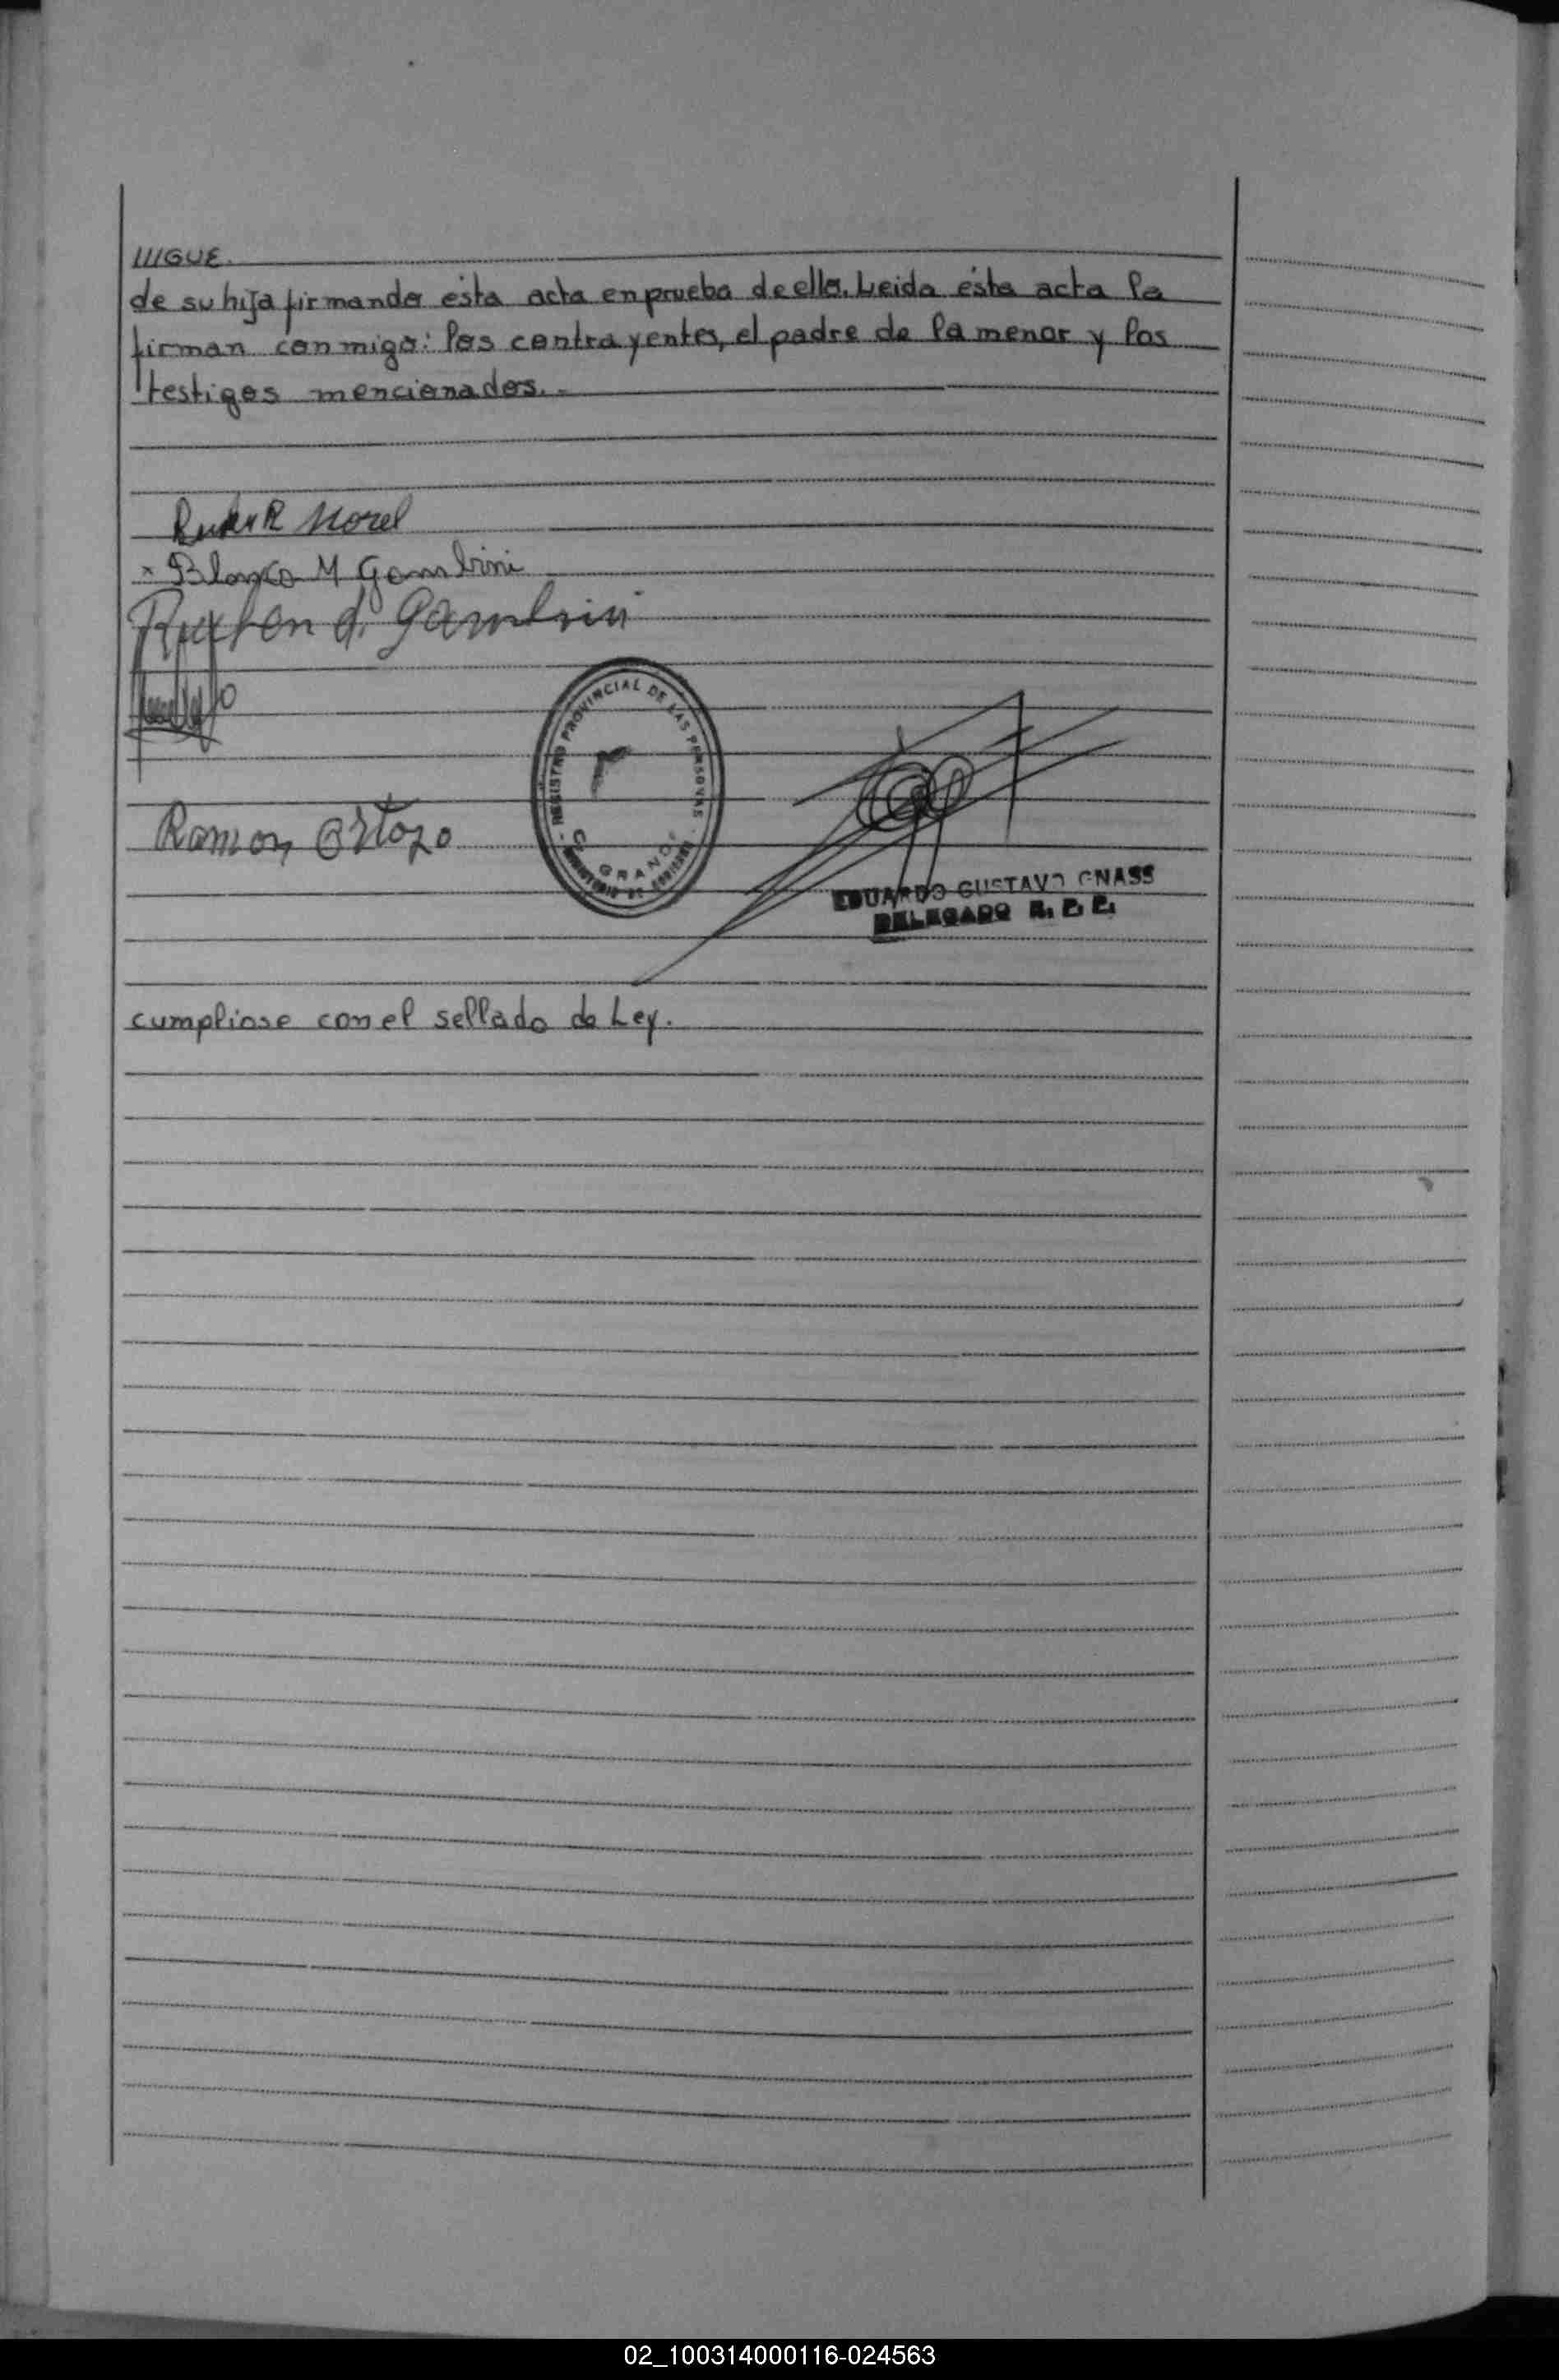 ///IGUE.
de su hija firmando ésta acta en prueba de ello. Leida ésta acta la
firman conmigo: los contrayentes, el padre de la menor y los
testigos mencionados.-
Morel
x Blanca M Gambini
Ruben d. Gambini
Ramon
REGISTRO PROVINCIAL DE LAS PERSONAS
GRANDE
MINISTERIO DE GOBIERNO
EDUARDO GUSTAVO GNASS
DELEGADO R. P. P.
cumpliose con el sellado de Ley.
02_100314000116-024563